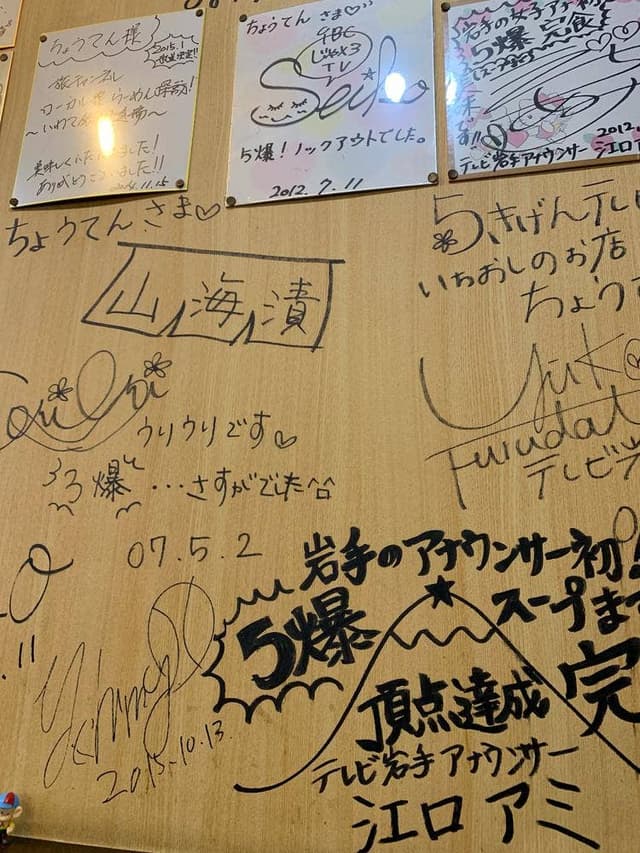 ちょうてん様
2015.
放送決定!!
旅チャンネル
ローカル線 らーめん探訪!
〜いわて
美味しくいただきました!
ありがとうございました!!
11.15
ちょうてん さま♡
IBC
じゃじゃじゃ
TV
Seiko
5爆!ノックアウトでした。
2012.7.11
岩手の女子アナ初
5爆 完食
です!!
2012.
テレビ岩手アナウンサー 江口ア
ちょうてん さま♡
山海漬
ウリウリです♡
33爆 …さすがでした^^
07.5.2
5きげんテレ
いちおしのお店
ちょう
Yuko
Furudat
テレビ
岩手のアナウンサー初!
スープま
5爆
完
頂点達成
テレビ岩手アナウンサー
江口 アミ
.11
2015.10.13.